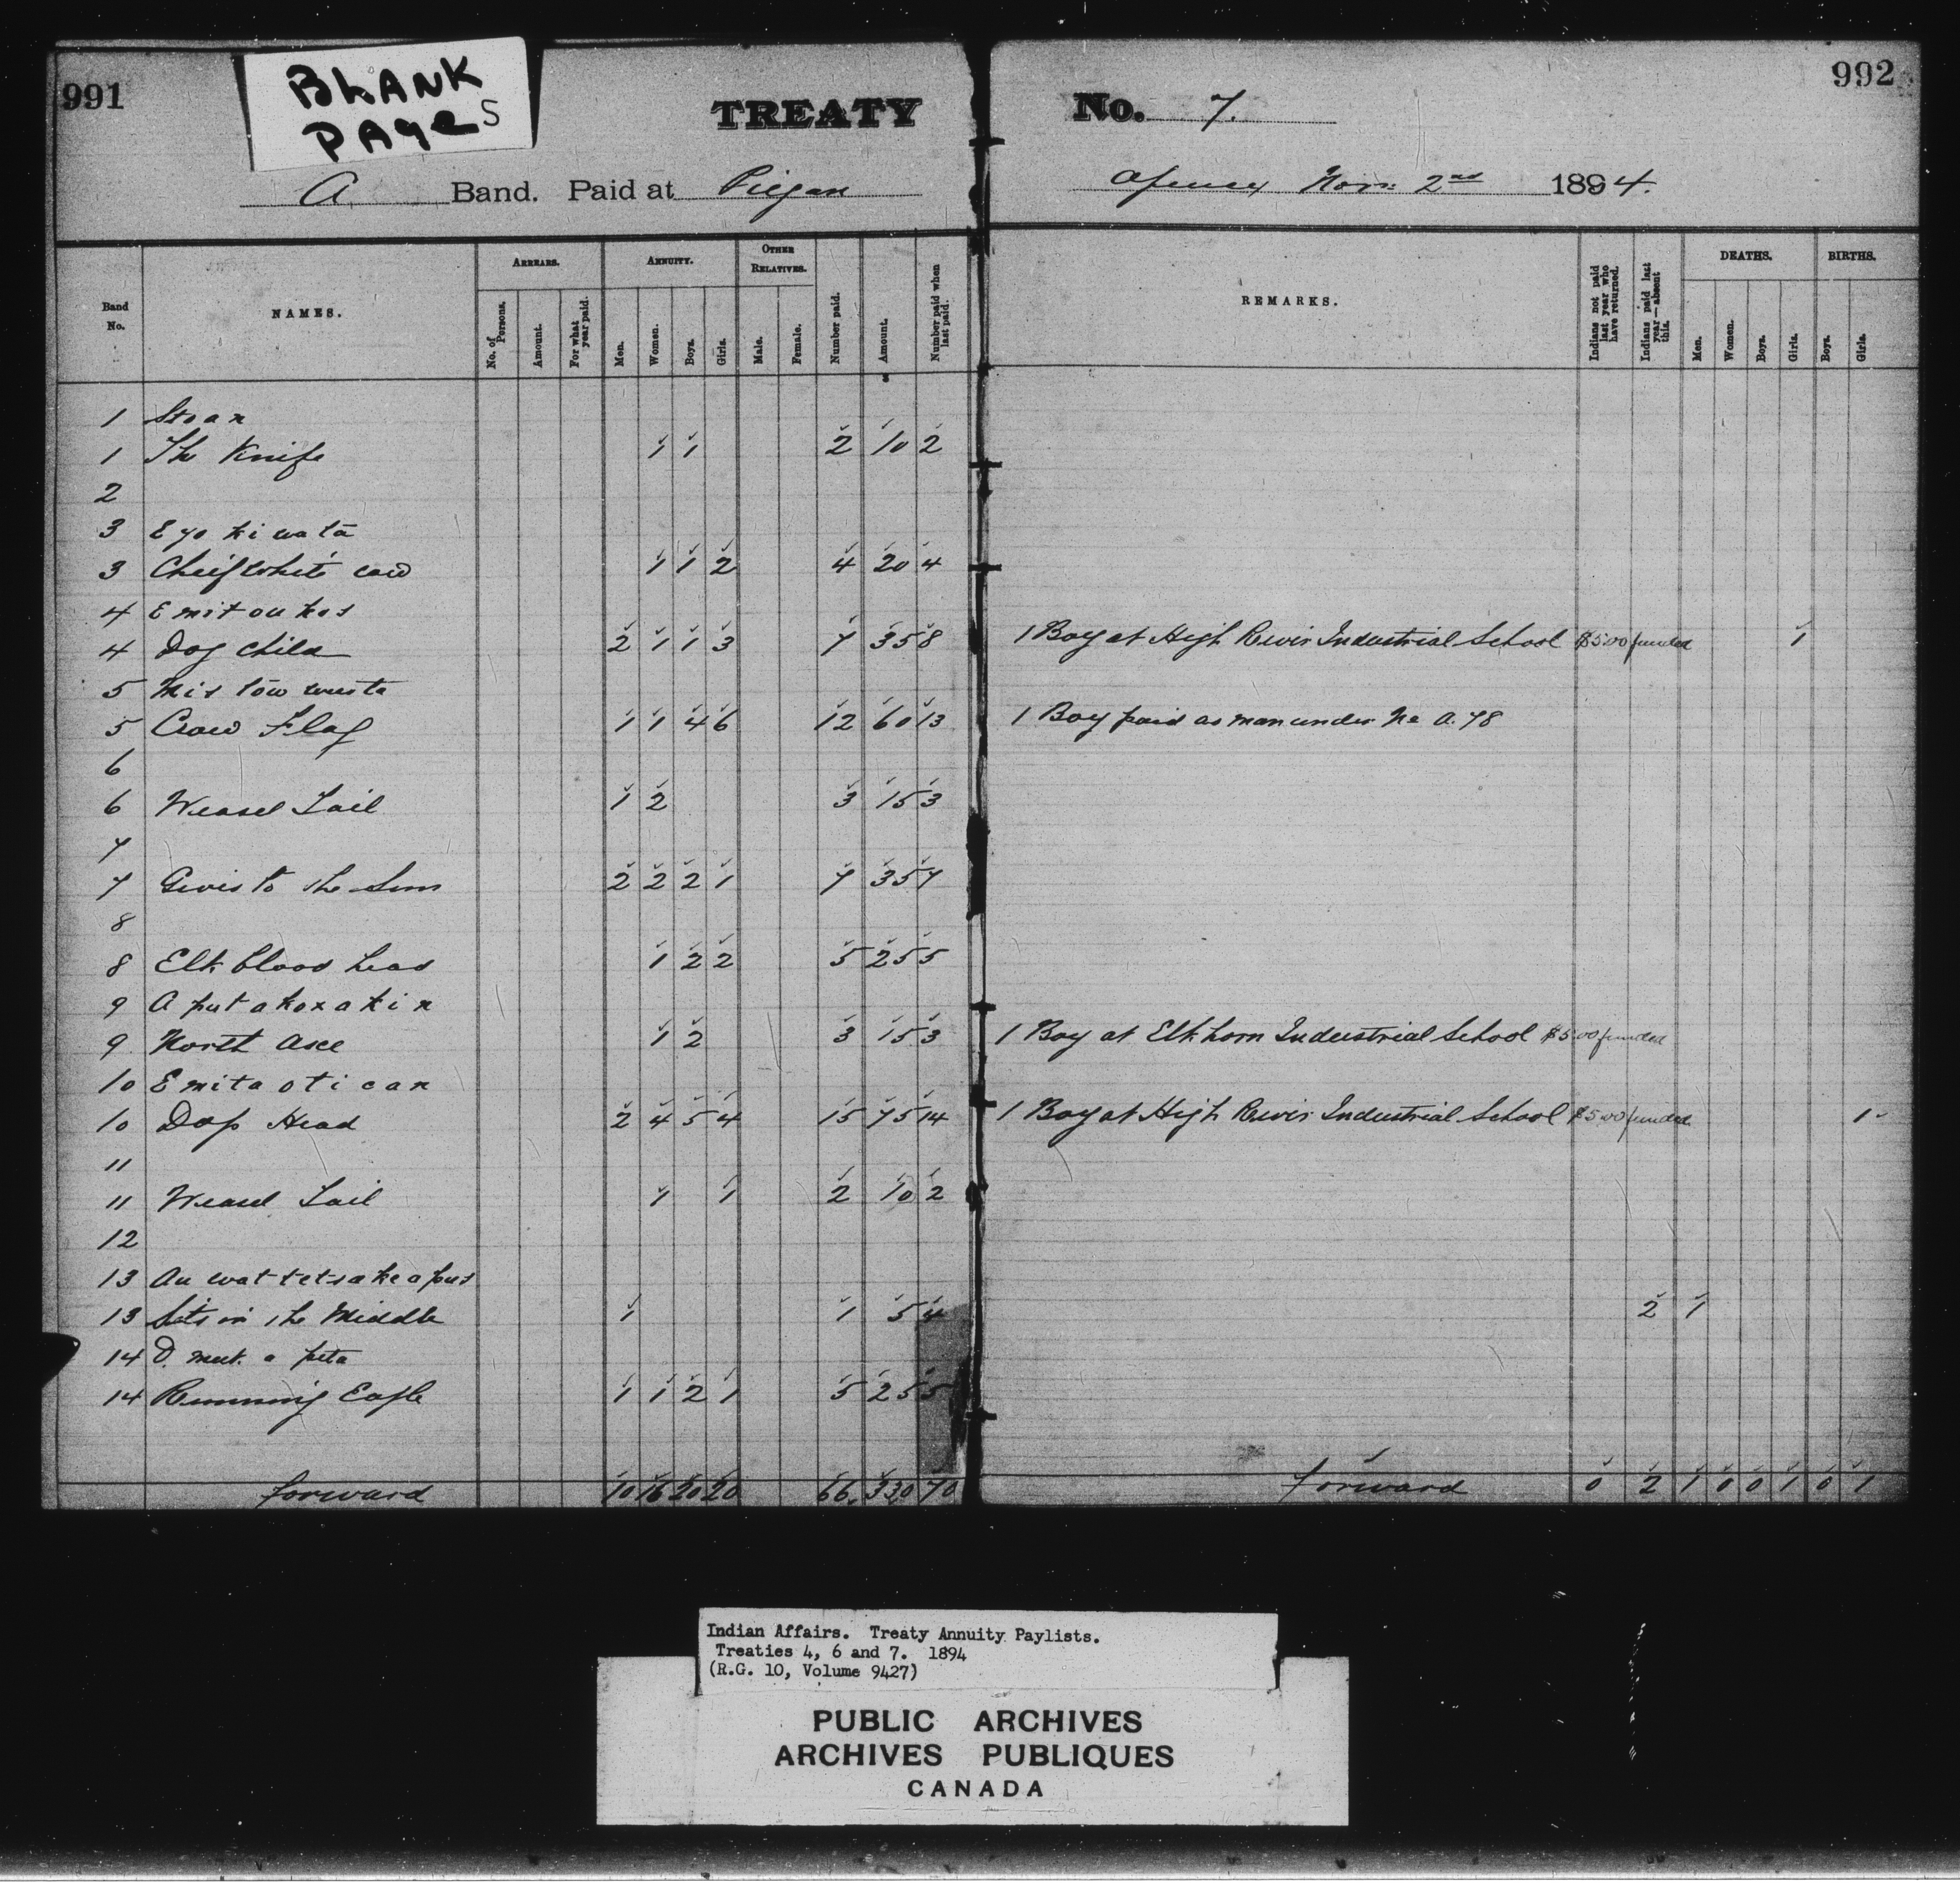 991
BLANK
PAGES
TREATY No. 7.
992
A Band. Paid at Piegan Agency Nov: 2nd 1894.
Band No. NAMES. ARREARS. No. of Persons. Amount. For what year paid. ANNUITY. Men. Women. Boys. Girls. OTHER RELATIVES. Male. Female. Number paid. Amount. Number paid when last paid. REMARKS. Indians not paid last year who have returned. Indians paid last year—absent this. DEATHS. Men. Women. Boys. Girls. BIRTHS. Boys. Girls.
1 Stoan
1 The Knife 1 1 2 10 2
2
3 E yo ki wa ta
3 Cheif White cow 1 1 2 4 20 4
4 E mit ou kos
4 Dog Child 2 1 1 3 7 35 8 1 Boy at High River Industrial School $5.00 funded 1
5
5 Crow Flag 1 1 4 6 12 60 13 1 Boy paid as man under No A. 78
6
6 Weasel Tail 1 2 3 15 3
7
7 Gives to the Sun 2 2 2 1 7 35 7
8
8 Elk blood head 1 2 2 5 25 5
9 A put a kox a kin
9 North Axe 1 2 3 15 3 1 Boy at Elkhorn Industrial School $5.00 funded
10 E mit a oti can
10 Dog Head 2 4 5 4 15 75 14 1 Boy at High River Industrial School $5.00 funded 1
11
11 Weasel Tail 1 1 2 10 2
12
13
13 Sits in the Middle 1 1 5 4 2 1
14 O. muk. a peta
14 Running Eagle 1 1 2 1 5 25 5
forward 10 16 20 20 66 330 70 forward 0 2 1 0 0 1 0 1
Indian Affairs. Treaty Annuity Paylists.
Treaties 4, 6 and 7. 1894
(R.G. 10, Volume 9427)
PUBLIC ARCHIVES
ARCHIVES PUBLIQUES
CANADA